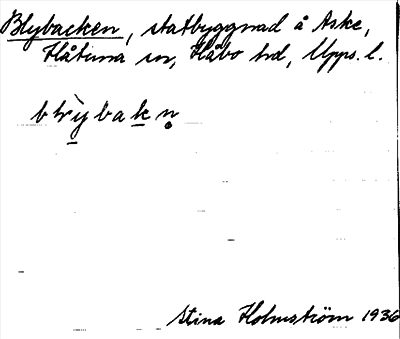 Blybacken, statbyggnad å Aske,
Håtuna sn, Håbo hd, Upps. l.
Stina Holmström 1936